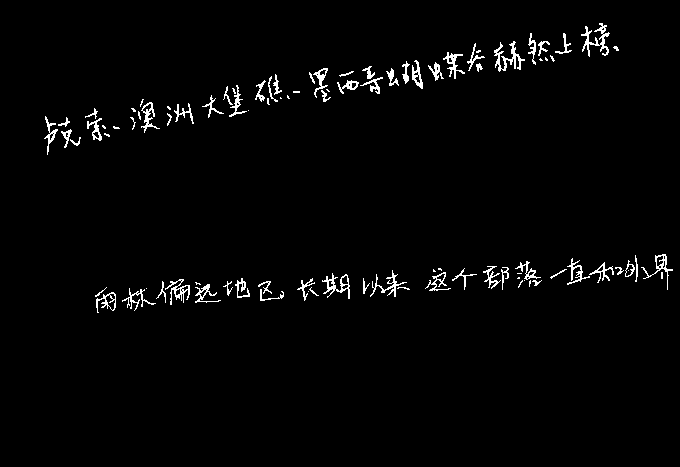 卢克索、澳洲大堡礁、墨西哥蝴蝶谷赫然上榜、
雨林偏远地区。长期以来这个部落一直和外界